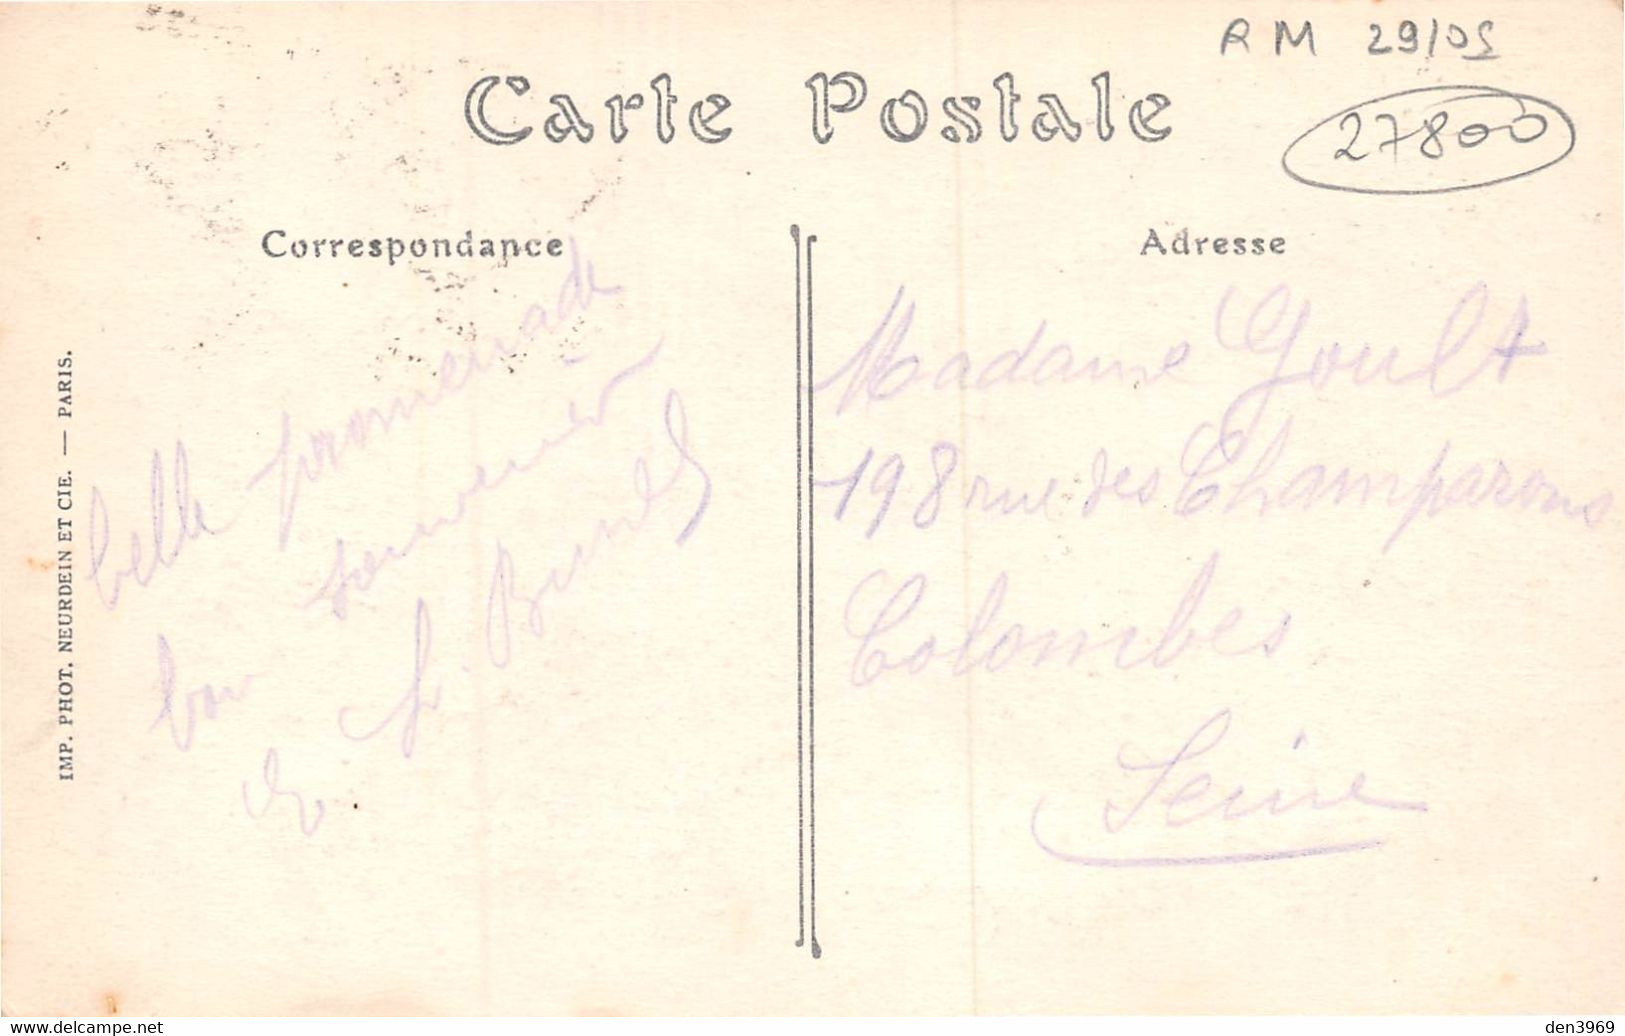 RM 29/05
Carte Postale
27800
Correspondance
Adresse
belle promenade
bon souvenir
Madame Goult
198 rue des Champarons
Colombes
Seine
IMP. PHOT. NEURDEIN ET CIE. — PARIS.
www.delcampe.net
den3969